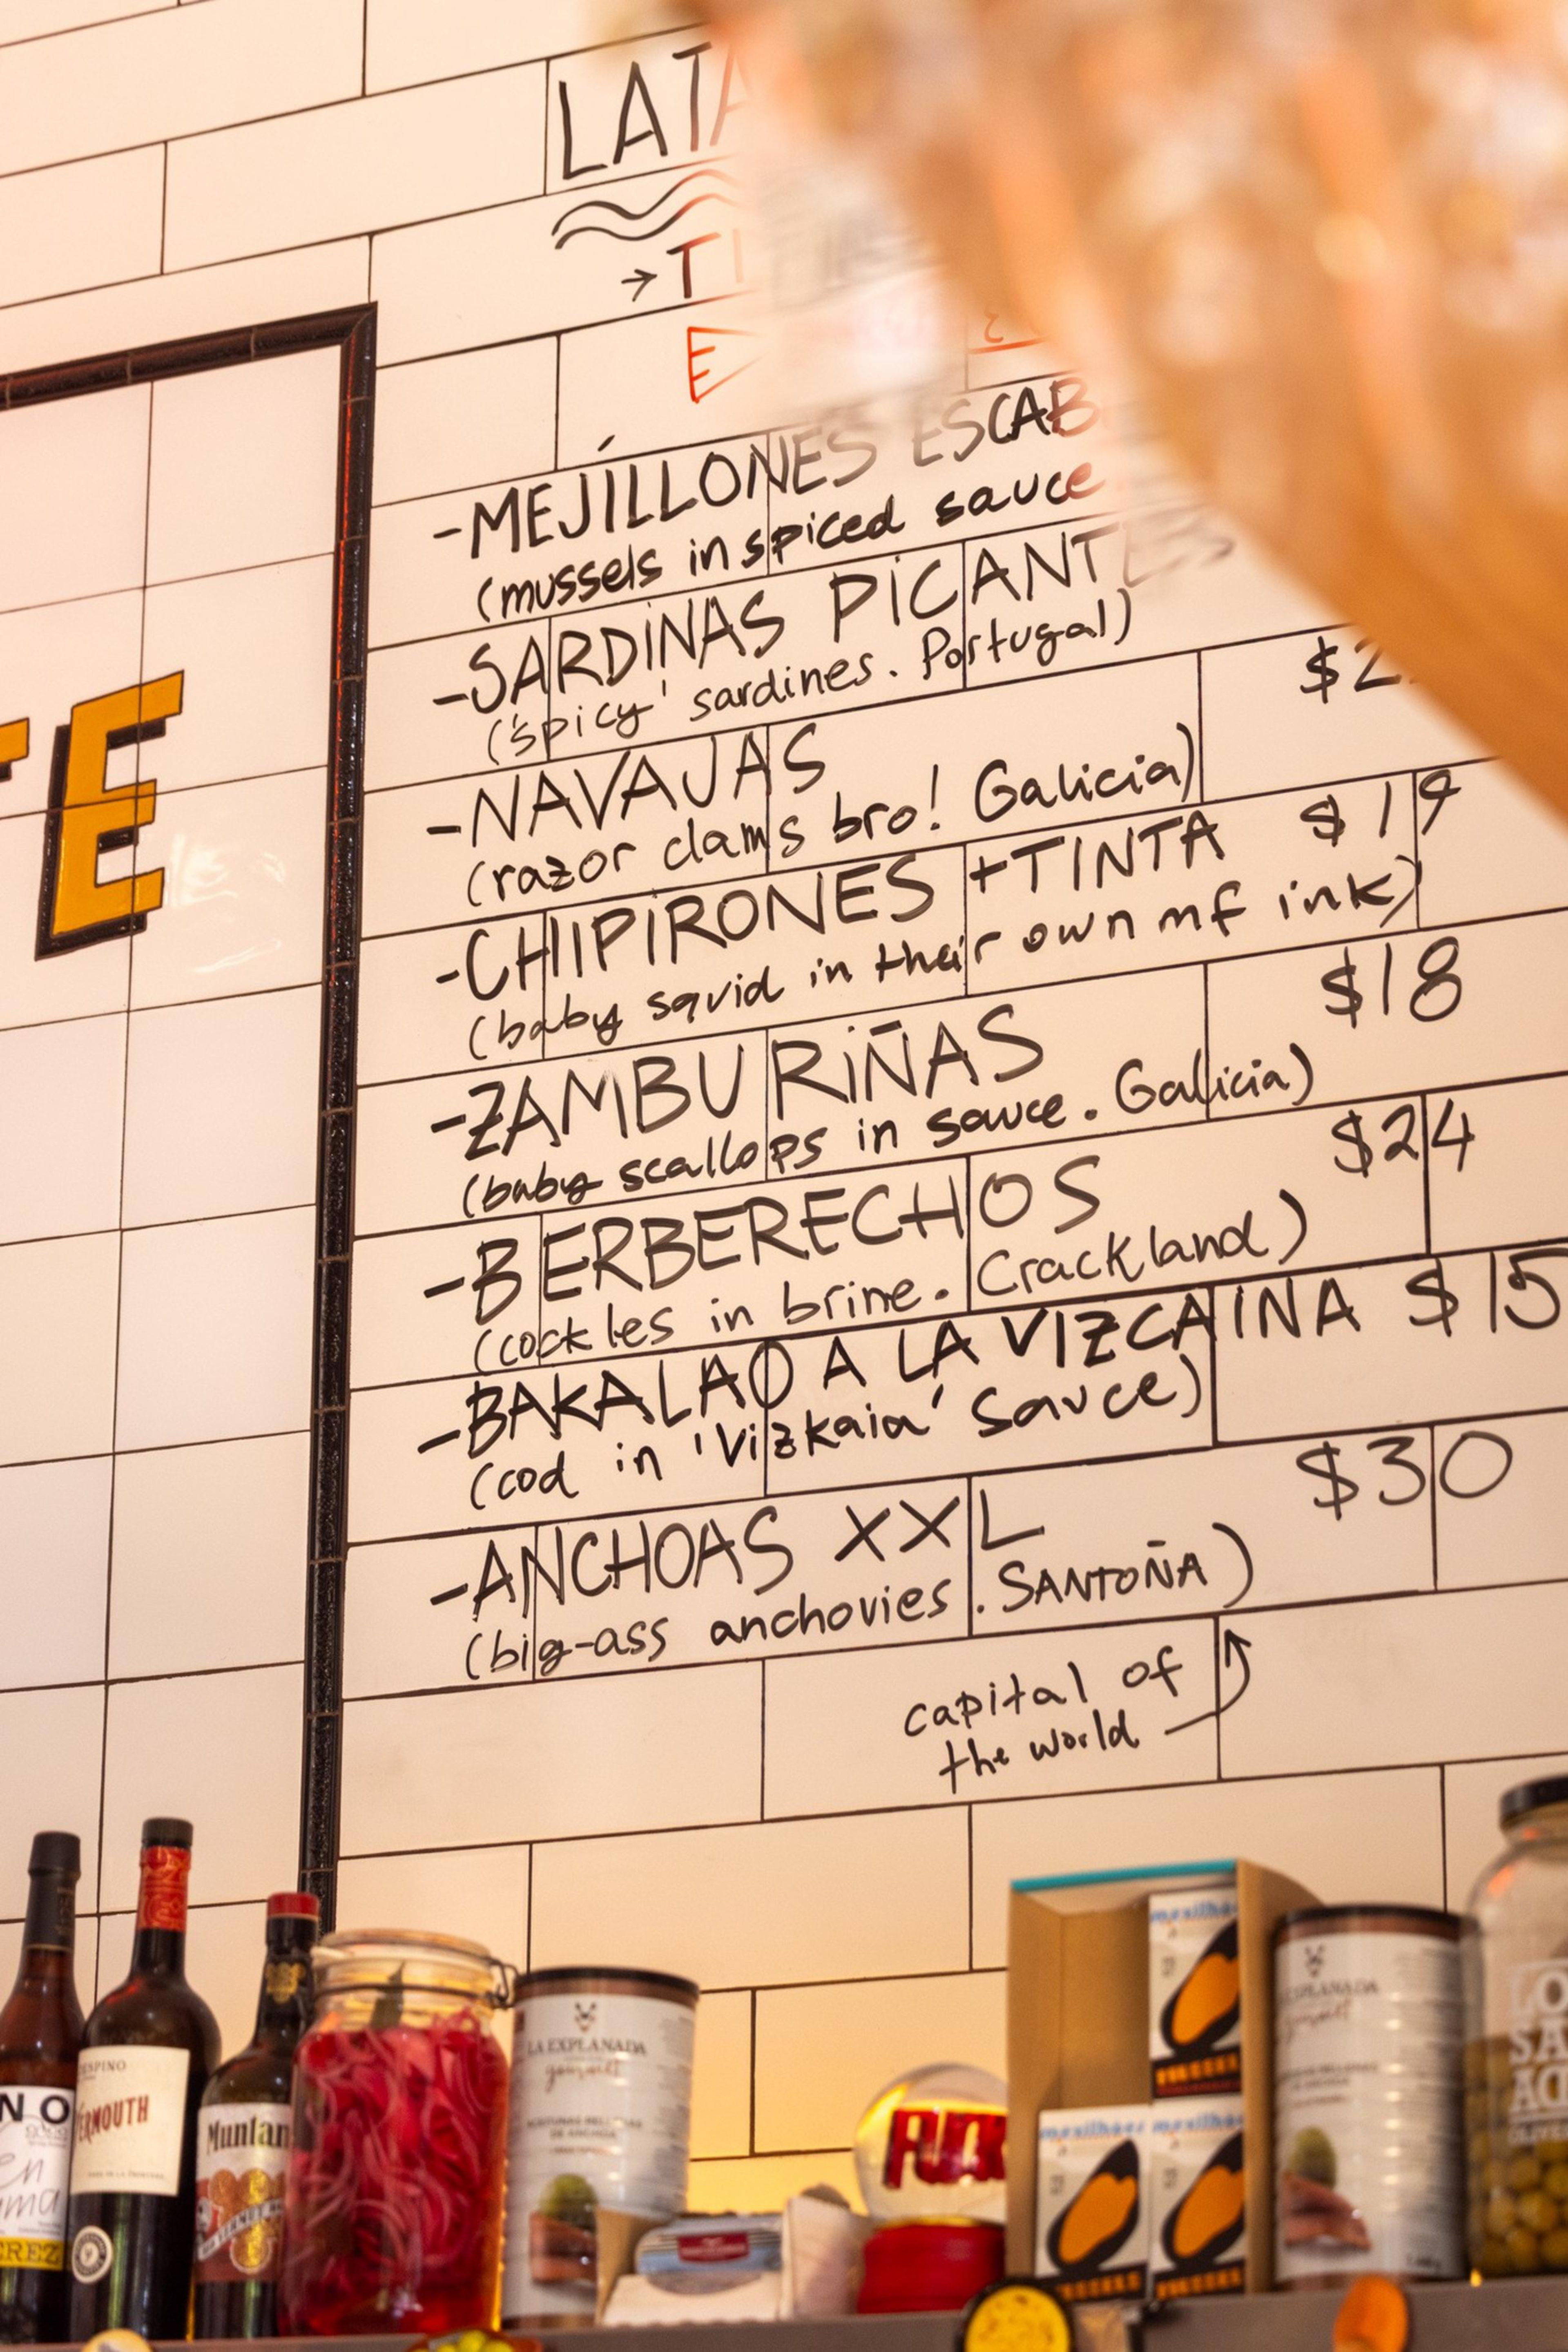 -MEJÍLLONES
(mussels in spiced sauce
-SARDINAS PICANTES
('spicy' sardines. Portugal)
-NAVAJAS
(razor clams bro! Galicia)
-CHIPIRONES +TINTA $19
(baby squid in their own mf ink)
-ZAMBURIÑAS $18
(baby scallops in sauce. Galicia)
-BERBERECHOS $24
(cockles in brine. Crackland)
-BAKALAO A LA VIZCAINA $15
(cod in 'Vizkaia' sauce)
-ANCHOAS XXL $30
(big-ass anchovies. SANTOÑA)
capital of
the world
E
NO
EREZ
VERMOUTH
LA EXPLANADA
gourmet
mexilhões
mexilhões
mexilhões
LA EXPLANADA
gourmet